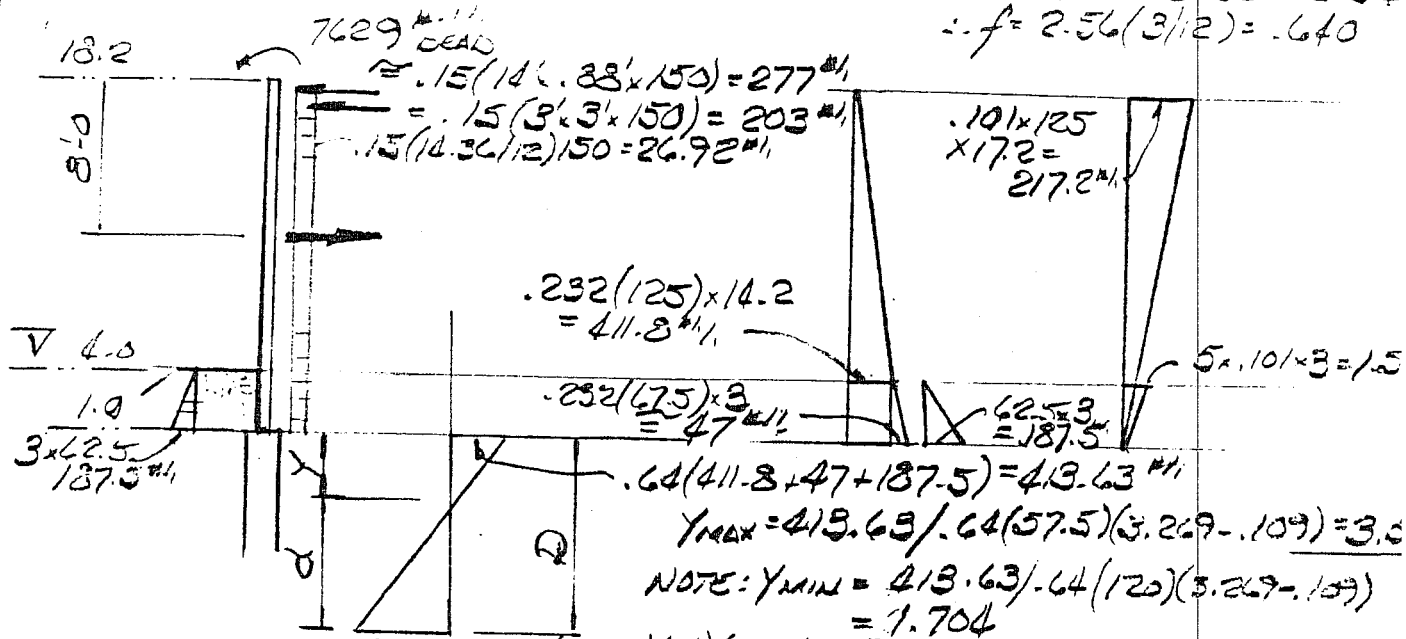 ∴ f = 2.56(3/12) = .640
18.2
7629 #·1/1
DEAD
≈ .15(14'×.88'×150) = 277 #/1
= .15(3'×3'×150) = 203 #/1
.15(14.36/12)150 = 26.92 #/1
8'-0
.101×125
×17.2=
217.2 #/1
.232(125)×14.2
= 411.8 #/1
▽ 4.0
5×.101×3=1.5
1.0
.232(67.5)×3
= 47 #/1
62.5×3
=187.5
3×62.5
187.5 #/1
.64(411.8+47+187.5)=413.63 #/1
Y
YMAX = 413.63/.64(57.5)(3.269-.109) = 3.5
D
NOTE: YMIN = 413.63/.64(120)(3.269-.109)
= 1.704